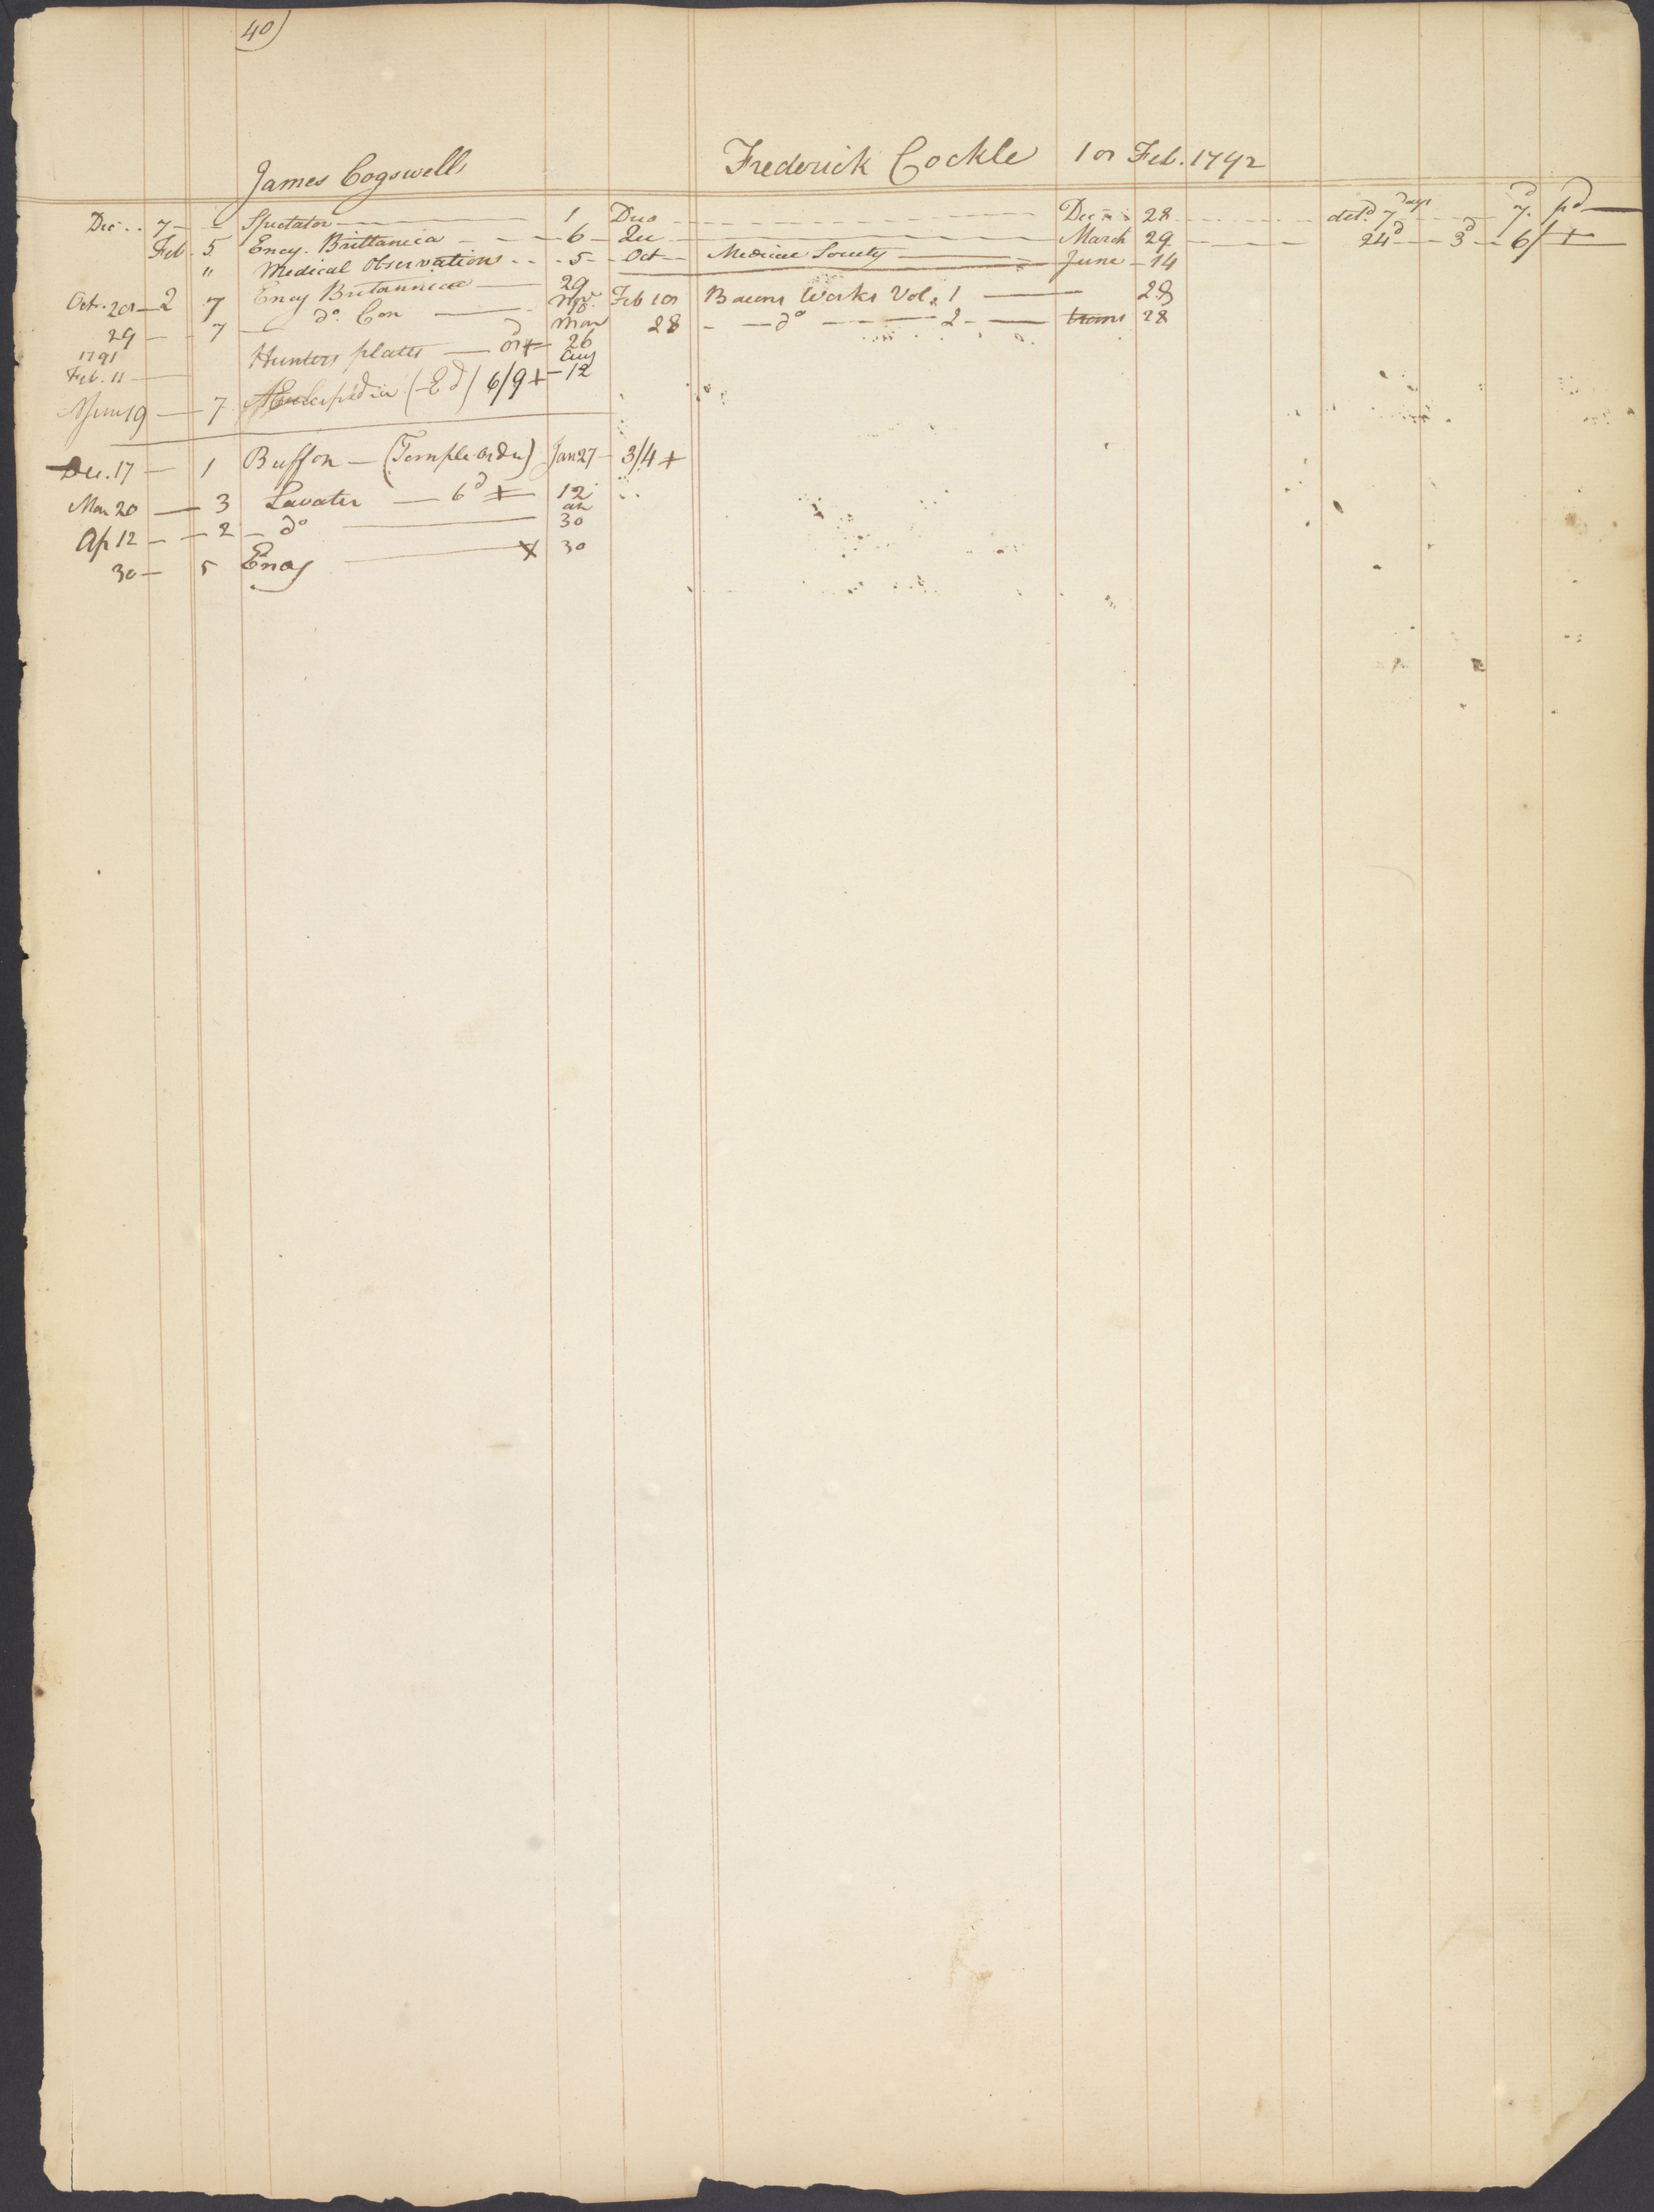 40)
James Cogswell
Dec 7 - Spectator - 1 Duo - Dec 28 - det.d 7 Days - 7d pd
Feb. 5 Ency. Brittanica - 6 - Qu - March 29 - 24d - 3d - 6/ +
" Medical Observations - 5 - Oct - Medical Society - June - 14
Oct. 20 - 2 7 Ency Britannica - 29
29 - 7 - do. Con - Nov. 10
1791
Feb. 11 - Hunters plates - Mar 26
19 - 7 (Ed) 6/9 + - Aug 12
Dec. 17 - 1 Buffon - (Temple order) Jan 27 - 3/4 +
Mar 20 - 3 Lavater - 6d + 12
Ap 12 - 2 - do - 30
30 - 5 Ency - x 30
Frederick Cockle 10 Feb. 1792
Feb 10 Bacons Works Vol. 1 - 28
28 - do - 2 - 28